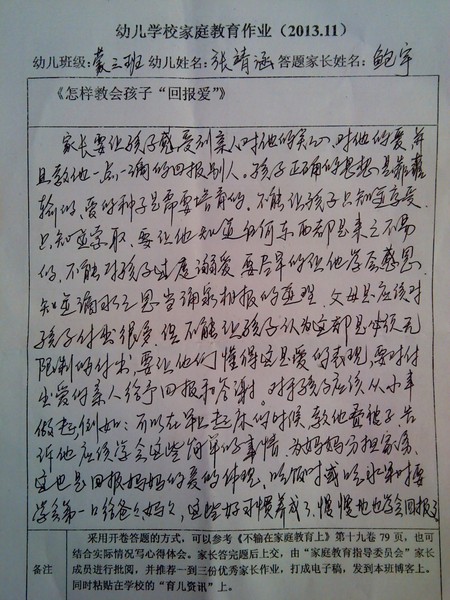 幼儿学校家庭教育作业（2013.11）
幼儿班级:蒙三班 幼儿姓名:张靖涵 答题家长姓名:鲍宇
《怎样教会孩子“回报爱”》
家长要让孩子感受到亲人对他的关心,对他的爱,并
且教他一点一滴的回报别人。孩子正确的思想是靠灌
输的,爱的种子是需要培育的。不能让孩子只知道享受
只知道索取,要让他知道任何东西都是来之不易
的,不能对孩子过度溺爱,要尽早的让他学会感恩
知道滴水之恩当涌泉相报的道理。父母是应该对
孩子付出很多,但不能让孩子认为这都是体统无
限制的付出,要让他们懂得这是爱的表现,要对付
出爱的亲人给予回报和答谢。对于孩子应该从小事
做起,例如:可以在早上起床的时候,教他叠被子,告
诉他应该学会这些简单的事情,为妈妈分担家务,
这也是回报妈妈的爱的体现,吃饭时或吃水果时要
学会第一口给爸爸妈妈,这些好习惯养成了,慢慢地也学会回报了
备注
采用开卷答题的方式，可以参考《不输在家庭教育上》第十九卷 79 页，也可
结合实际情况写心得体会。家长答完题后上交，由“家庭教育指导委员会”家长
成员进行批阅，并推荐一到三份优秀家长作业，打成电子稿，发到本班博客上。
同时粘贴在学校的“育儿资讯”上。